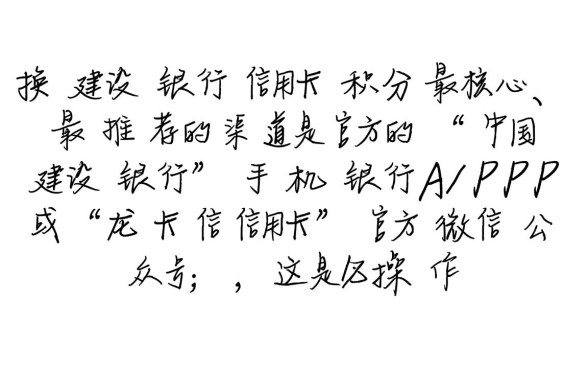 换 建设 银行 信用卡 积分 最核心、
最 推 荐的 渠 道是 官方的 “ 中国
建设 银行” 手 机 银行A/PPP
或 “龙 卡 信 信用卡” 官方 微信 公
众号; , 这是亿操 作